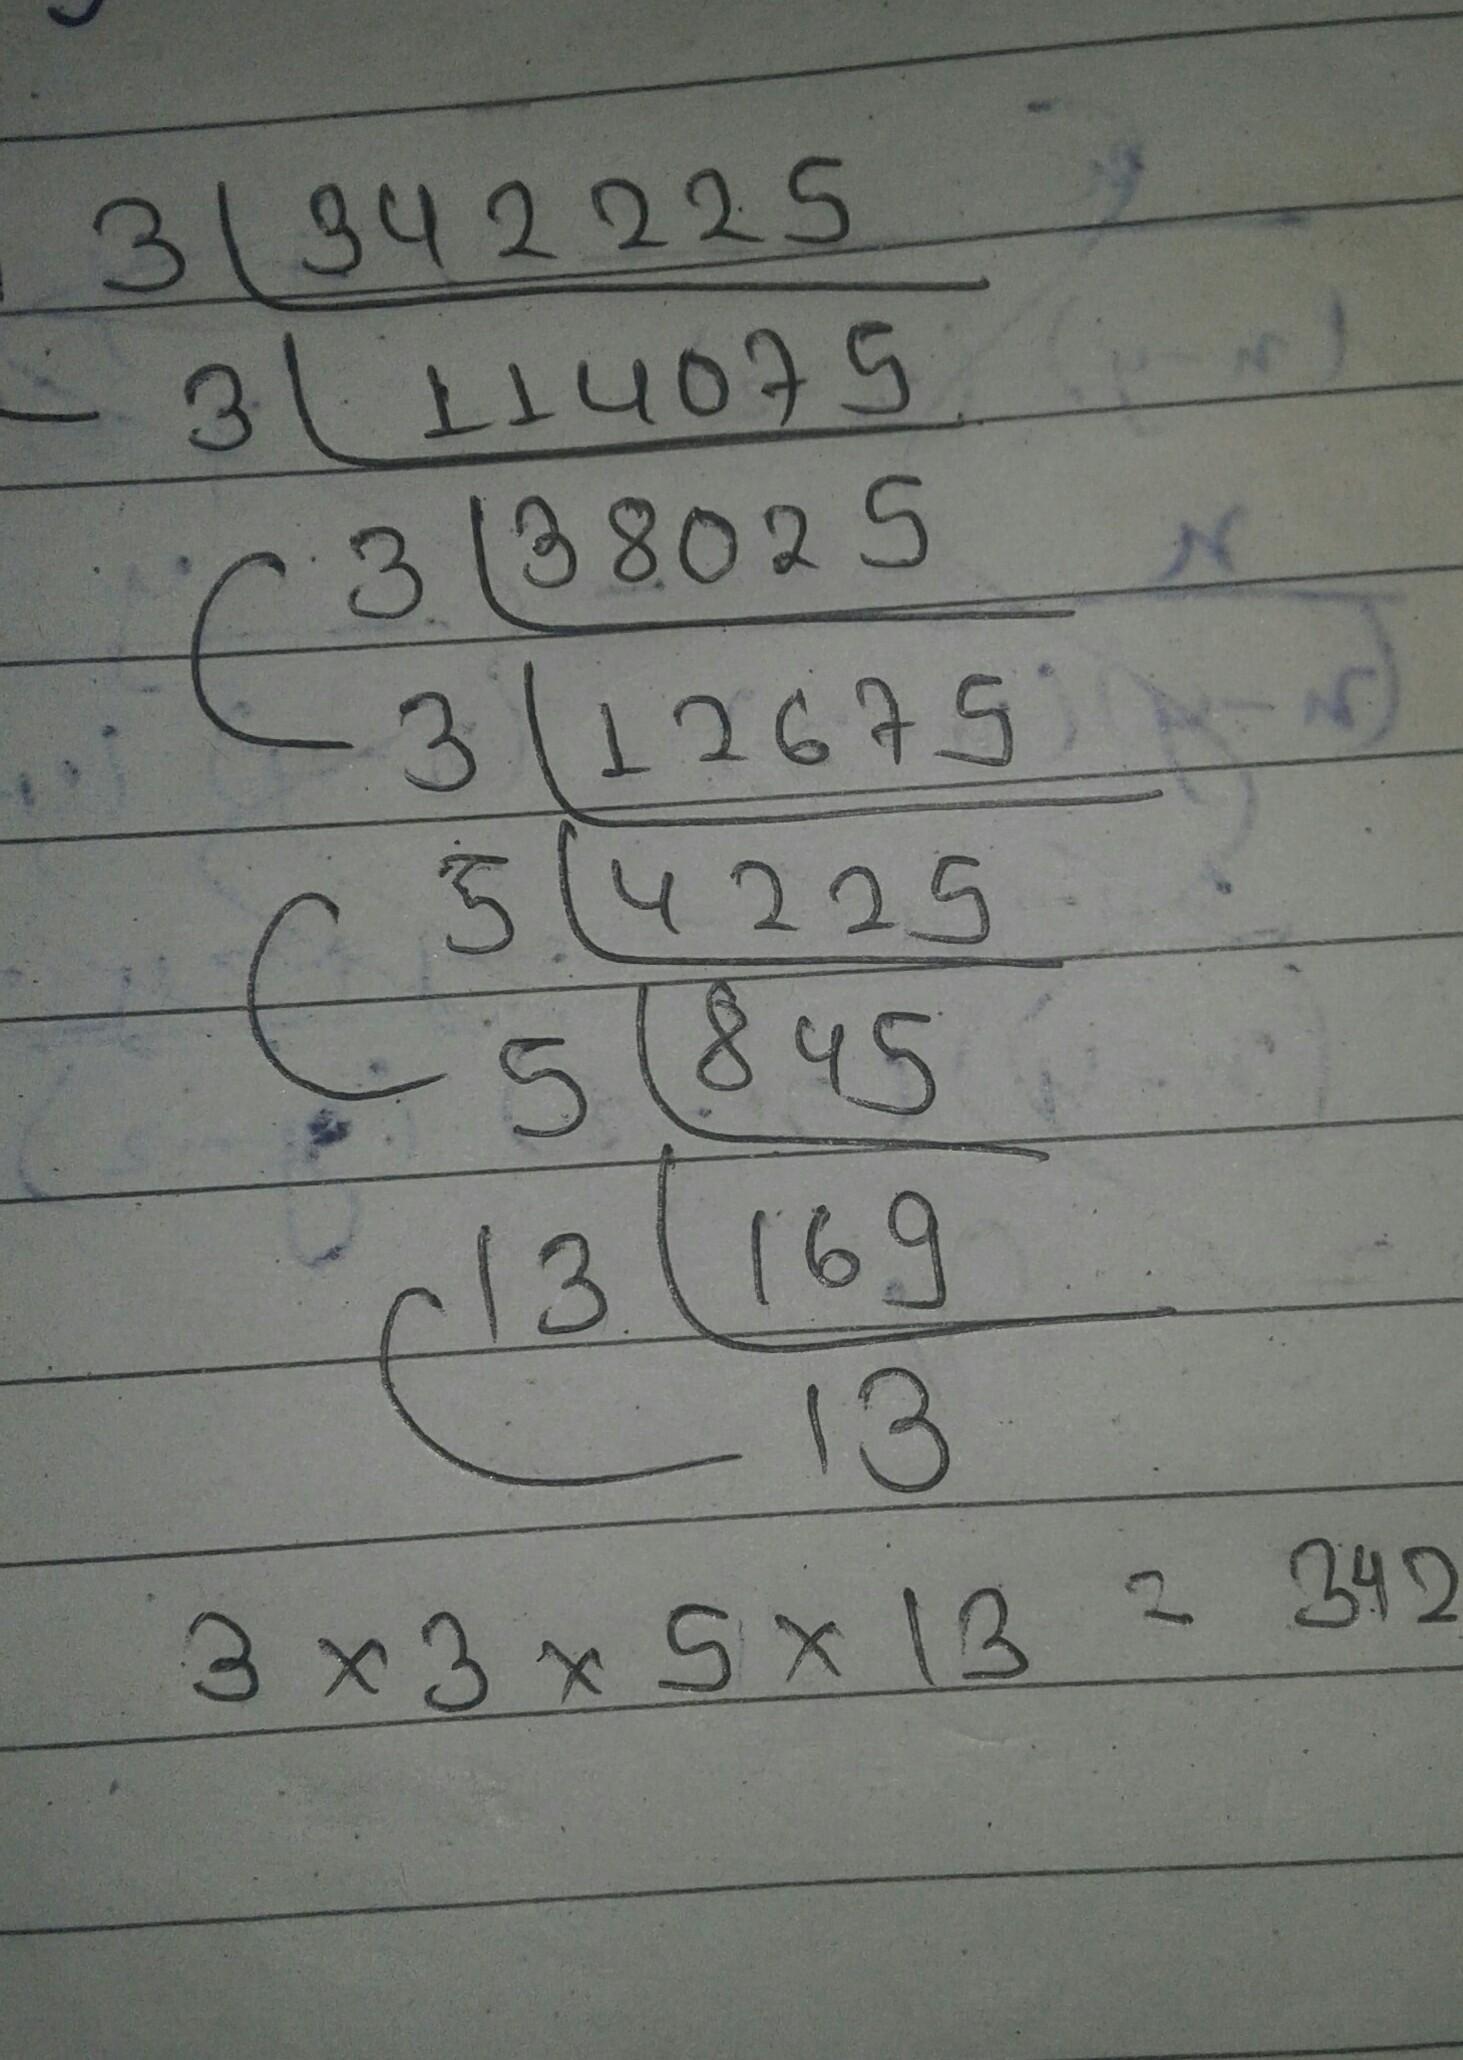 3 342225
3 114075
3 38025
3 12675
5 4225
5 845
13 169
13
3 × 3 × 5 × 13 = 342